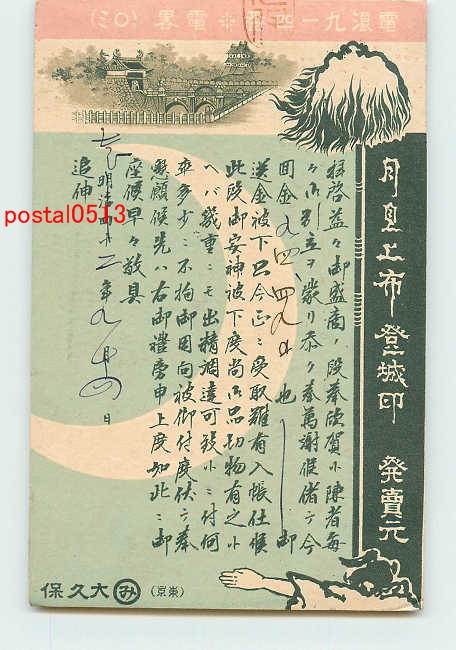 電浪九一四番※電畧(〇ミ)
月星上布登城印 発賣元
拝啓益々御盛商ノ段奉欣賀小陳者毎
々御引立ヲ蒙リ恭ク奉萬謝候偖テ今
回金 也 御
送金被下只今正ニ受取難有入帳仕候
此段御安神被下度尚御品切物有之小
ヘバ幾重ニモ出精調達可致小ニ付何
卒多少ニ不拘御用向被仰付度伏テ奉
懇願候先ハ右御禮旁申上度如此ニ御
座候早々敬具
明治四十二年九月 日
追伸
postal0513
(東京) み 大久保